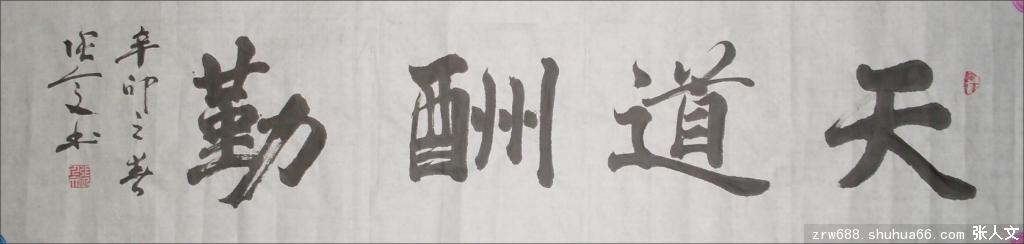 天道酬勤
辛卯之春
張人文书
zrw688.shuhua66.com 张人文